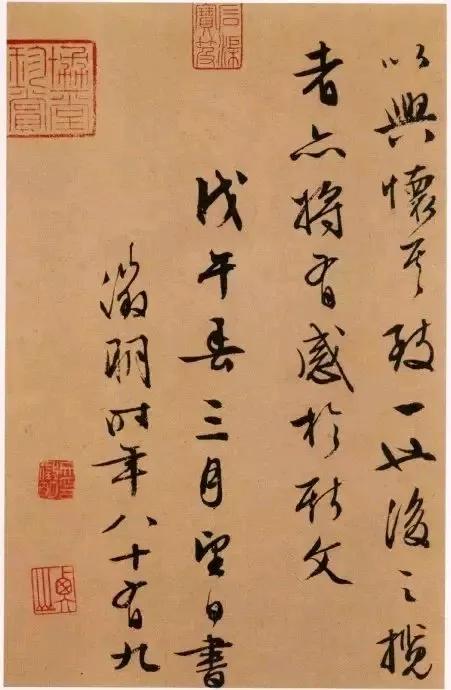 以興懷其致一也後之攬
者亦將有感於斯文
戊午春三月望日書
徵明時年八十有九
石渠寶笈